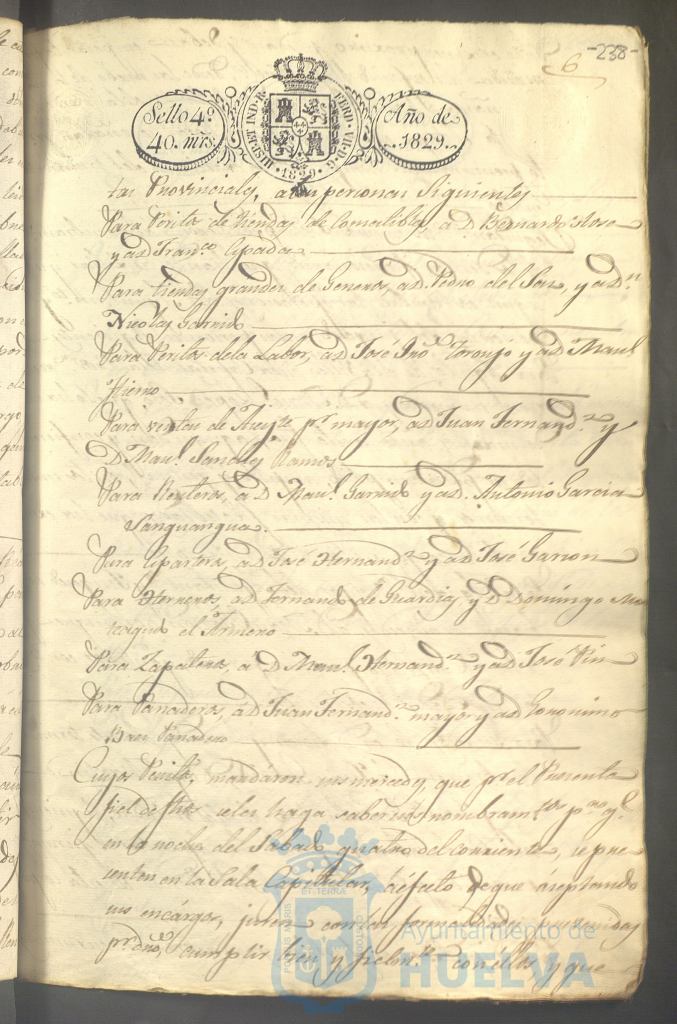 -238-
6
Sello 4º
40. mrs.
HISP. ET IND. R.
FERD. VII. D. G.
1829
Año de
1829.
tas Provinciales, a las personas siguientes
Para Peritos de tiendas de Comestibles, a D. Bernardo Rose
y a D Franco. Cepada
Para tiendas grandes de Generos, a D. Pedro del Saz, y a Dn.
Nicolas Garrido
Para Peritos de la Labor, a D José Ino. Toronjo y a D Manl
Hierro
Para ventas de Azeyte pr. mayor, a D Juan Fernandz. y
D Manl. Sanchez Ramos
Para a D Manl. Garrido y a D. Antonio Garcia
Sanguangua.
Para a D José Hernandz y a D José Garzon
Para Herreros, a D Fernando de Guardia, y D Domingo
el Armero
Para Zapateros, a D Manl. Hernandz. y a D José
Para Panaderos, a D Juan Fernandz. mayor y a D Geronimo
Baez Panadero
Cuyos Peritos, mandáron sus mercedes, que pr. el Presente
fiel de fhos se les haga saber sus nombramtos pa. qe.
en la noche del Sabado quatro del corriente, se pre
senten en la Sala Capitular, á efecto de que áceptando
sus encárgos, juren con las formalidades prevenidas
pr. dro, cumplir bien y fielmte. con éllos, y que
PORTUS MARIS
ET TERRÆ CUSTODIA
Ayuntamiento de
HUELVA